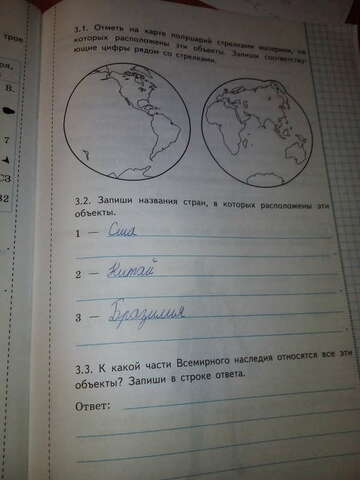 трое
3.1. Отметь на карте полушарий стрелками материки, на
которых расположены эти объекты. Запиши соответству-
ющие цифры рядом со стрелками.
В.
7
С3
В2
3.2. Запиши названия стран, в которых расположены эти
объекты.
1 — Сша
2 — Китай
3 — Бразилия
3.3. К какой части Всемирного наследия относятся все эти
объекты? Запиши в строке ответа.
Ответ: